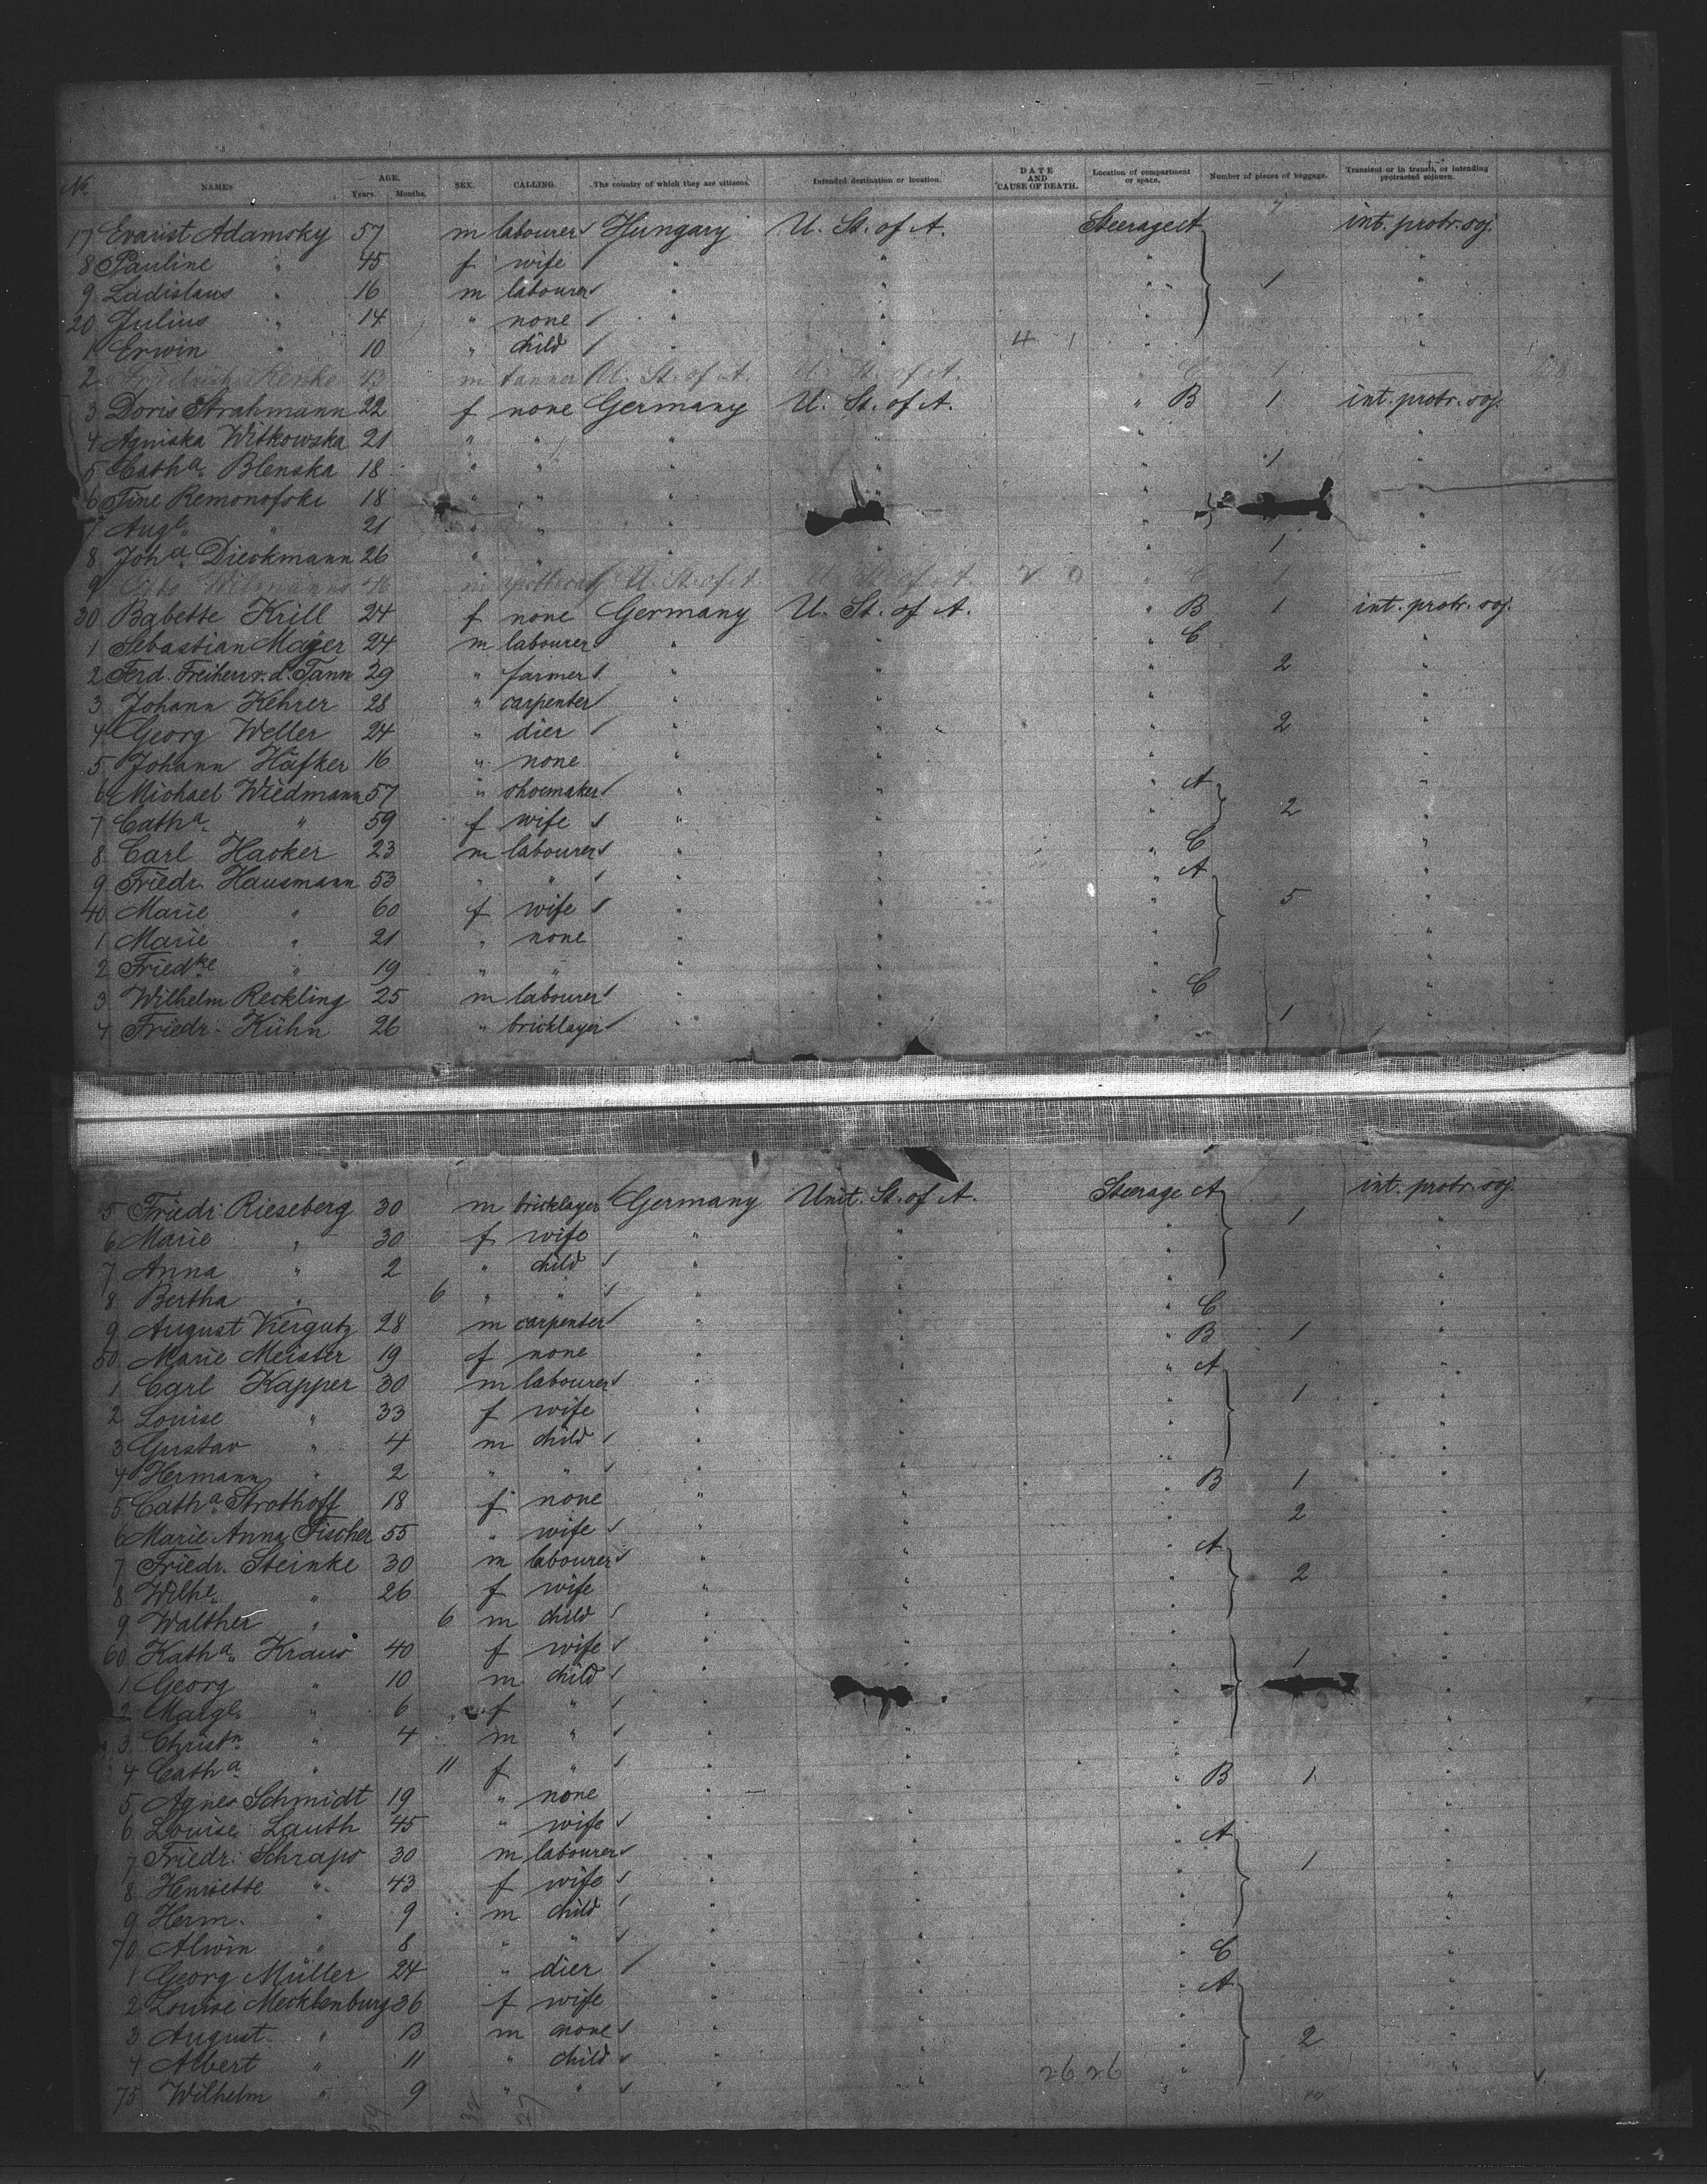 No. NAMES AGE. Years. Months. SEX. CALLING. The country of which they are citizens. Intended destination or location. DATE AND CAUSE OF DEATH. Location of compartment or space. Number of pieces of baggage. Transient or in transit, or intending protracted sojourn.
17 Evarist Adamsky 57 m labourer Hungary U. St. of A. Steerage A int. protr. soj.
8 Pauline " 45 f wife " " " "
9 Ladislaus " 16 m labourer " " " 1 "
20 Julius " 14 " none " " " "
1 Erwin " 10 " child " " 4 1 " "
2 Friedrich Renke 43 m tanner U. St. of A. U. St. of A. " C 1
3 Doris Strahmann 22 f none Germany U. St. of A. " B 1 int. protr. soj.
4 Agniska Witkowska 21 " " " " " "
5 Cath a. Blenska 18 " " " " " 1 "
6 Tine Remonofski 18 " " " " " "
7 Aug e. " 21 " " " " " "
8 Joh a. Dieckmann 26 " " " " " 1 "
9 46 m U. St. of A. U. St. of A. 2 0 " C 1
30 Babette Krill 24 f none Germany U. St. of A. " B 1 int. protr. soj.
1 Sebastian Mayer 24 m labourer " " " C "
2 Ferd. Freiherr v. d. Tann 29 " farmer " " " 2 "
3 Johann Kehrer 28 " carpenter " " " "
4 Georg Weller 24 " dier " " " 2 "
5 Johann Häfker 16 " none " " " "
6 Michael Wiedmann 57 " shoemaker " " " A "
7 Cath a. " 59 f wife " " " 2 "
8 Carl Hacker 23 m labourer " " " C "
9 Friedr. Hausmann 53 " " " " " A "
40 Marie " 60 f wife " " " 5 "
1 Marie " 21 " none " " " "
2 Fried ke " 19 " " " " " "
3 Wilhelm Reckling 25 m labourer " " " C "
4 Friedr. Kühn 26 " bricklayer " " " 1 "
5 Friedr. Rieseberg 30 m bricklayer Germany Unit. St. of A. Steerage A 1 int. protr. soj.
6 Marie " 30 f wife " " " "
7 Anna " 2 " child " " " "
8 Bertha " 6 " " " " " "
9 August Viergutz 28 m carpenter " " " C "
50 Marie Meister 19 f none " " " B 1 "
1 Carl Kapper 30 m labourer " " " A "
2 Louise " 33 f wife " " " 1 "
3 Gustav " 4 m child " " " "
4 Hermann " 2 " " " " " "
5 Cath a. Strothoff 18 f none " " " B 1 "
6 Marie Anna Fischer 55 " wife " " " 2 "
7 Friedr. Steinke 30 m labourer " " " A "
8 Wilh e. " 26 f wife " " " 2 "
9 Walther " 6 m child " " " "
60 Kath a. Kraus 40 f wife " " " 1 "
1 Georg " 10 m child " " " "
2 Marg e. " 6 f " " " " "
3 Christ n. " 4 m " " " " "
4 Cath a. " 11 f " " " " "
5 Agnes Schmidt 19 " none " " " B 1 "
6 Louise Lauth 45 " wife " " " "
7 Friedr. Schraps 30 m labourer " " " A 1 "
8 Henriette " 43 f wife " " " "
9 Herm. " 9 m child " " " "
70 Alwin " 8 " " " " " "
1 Georg Müller 24 " dier " " " C "
2 Louise Mecklenburg 36 f wife " " " A "
3 August " 13 m none " " " 2 "
4 Albert " 11 " child " " " "
75 Wilhelm " 9 " " " " 26 26 " "
59 32 27